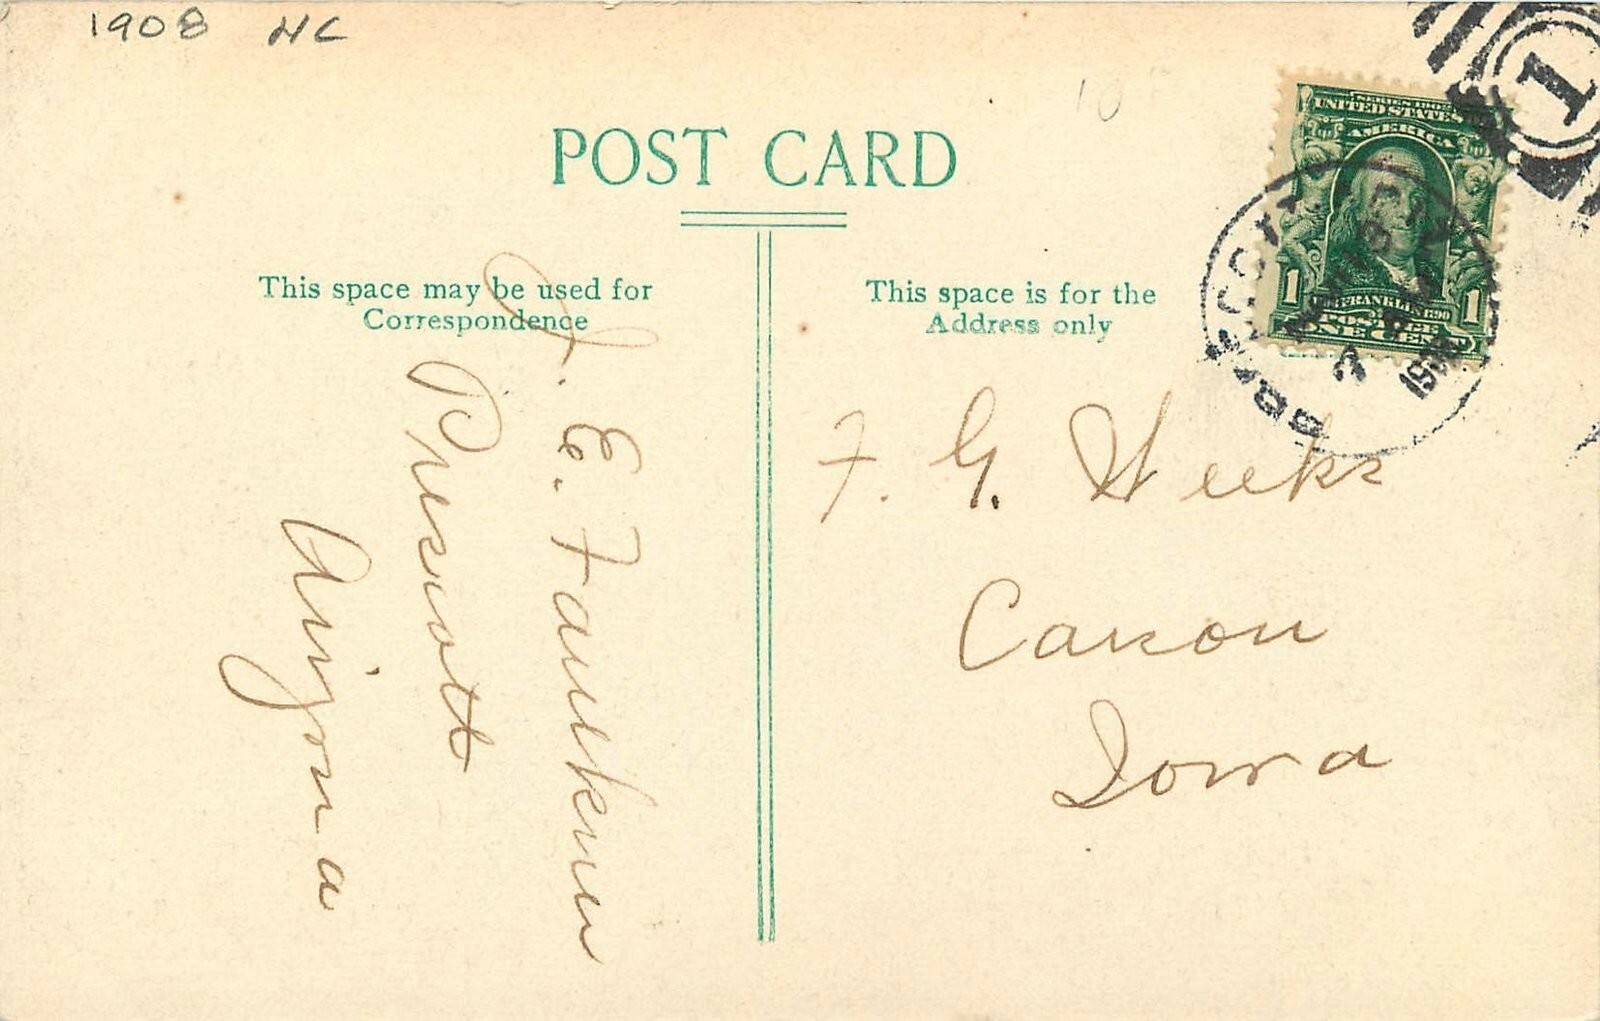 1908 NC
POST CARD
This space may be used for
Correspondence
J. E. Faulkner
Prescott
Arizona
This space is for the
Address only
F. G. Weeks
Carson
Iowa
SERIES 1902
UNITED STATES
AMERICA
1 FRANKLIN 1790 1
ONE CENT
1908
1